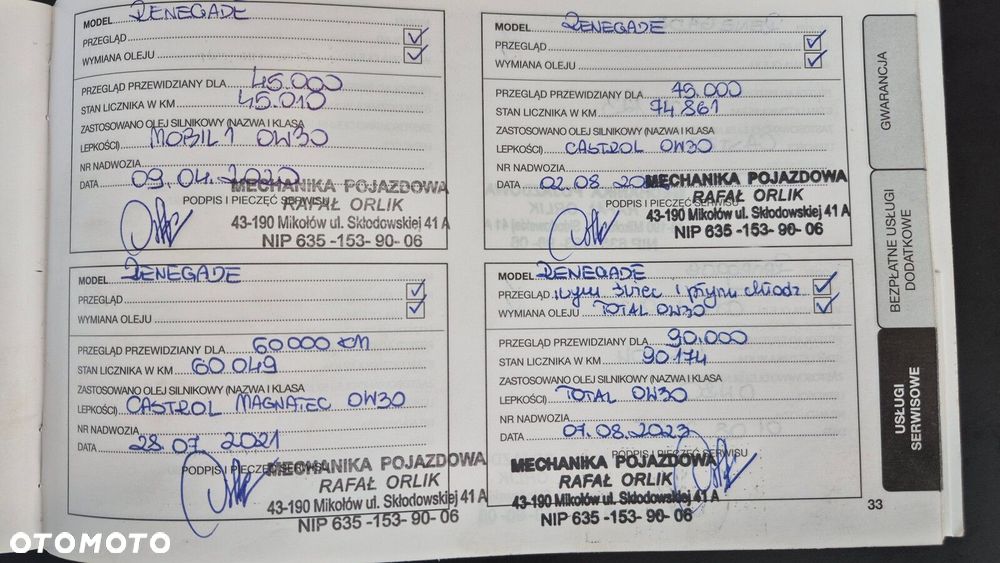 MODEL RENEGADE
PRZEGLĄD
WYMIANA OLEJU
PRZEGLĄD PRZEWIDZIANY DLA 45.000
STAN LICZNIKA W KM 45.010
ZASTOSOWANO OLEJ SILNIKOWY (NAZWA I KLASA
LEPKOŚCI) MOBIL 1 0W30
NR NADWOZIA
DATA 09.04.2020
PODPIS I PIECZĘĆ SERWISU
MECHANIKA POJAZDOWA
RAFAŁ ORLIK
43-190 Mikołów ul. Skłodowskiej 41 A
NIP 635 -153- 90- 06
MODEL RENEGADE
PRZEGLĄD
WYMIANA OLEJU
PRZEGLĄD PRZEWIDZIANY DLA 75.000
STAN LICZNIKA W KM 74.861
ZASTOSOWANO OLEJ SILNIKOWY (NAZWA I KLASA
LEPKOŚCI) CASTROL 0W30
NR NADWOZIA
DATA 02.08
PODPIS I PIECZĘĆ SERWISU
MECHANIKA POJAZDOWA
RAFAŁ ORLIK
43-190 Mikołów ul. Skłodowskiej 41 A
NIP 635 -153- 90- 06
MODEL RENEGADE
PRZEGLĄD
WYMIANA OLEJU
PRZEGLĄD PRZEWIDZIANY DLA 60000 KM
STAN LICZNIKA W KM 60.049
ZASTOSOWANO OLEJ SILNIKOWY (NAZWA I KLASA
LEPKOŚCI) CASTROL MAGNATEC 0W30
NR NADWOZIA
DATA 28.07.2021
PODPIS I PIECZĘĆ SERWISU
MECHANIKA POJAZDOWA
RAFAŁ ORLIK
43-190 Mikołów ul. Skłodowskiej 41 A
NIP 635 -153- 90- 06
MODEL RENEGADE
PRZEGLĄD wym świec i płynu chłodz
WYMIANA OLEJU TOTAL 0W30
PRZEGLĄD PRZEWIDZIANY DLA 90.000
STAN LICZNIKA W KM 90.174
ZASTOSOWANO OLEJ SILNIKOWY (NAZWA I KLASA
LEPKOŚCI) TOTAL 0W30
NR NADWOZIA
DATA 07.08.2023
PODPIS I PIECZĘĆ SERWISU
MECHANIKA POJAZDOWA
RAFAŁ ORLIK
43-190 Mikołów ul. Skłodowskiej 41 A
NIP 635 -153- 90- 06
GWARANCJA
BEZPŁATNE USŁUGI
DODATKOWE
USŁUGI
SERWISOWE
33
OTOMOTO